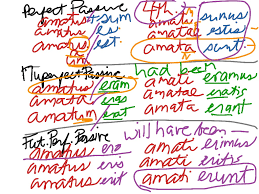 Perfect Passive 4th
amatus + sum amati sumus
amata es amatae estis
amatum est. amata sunt.
Pluperfect Passive had been
amatus eram amati eramus
amata eras amatae eratis
amatum erat amata erant
Fut. Perf. Passive will have been
amatus ero amati erimus
amatus eris amati eritis
amatus erit amati erunt